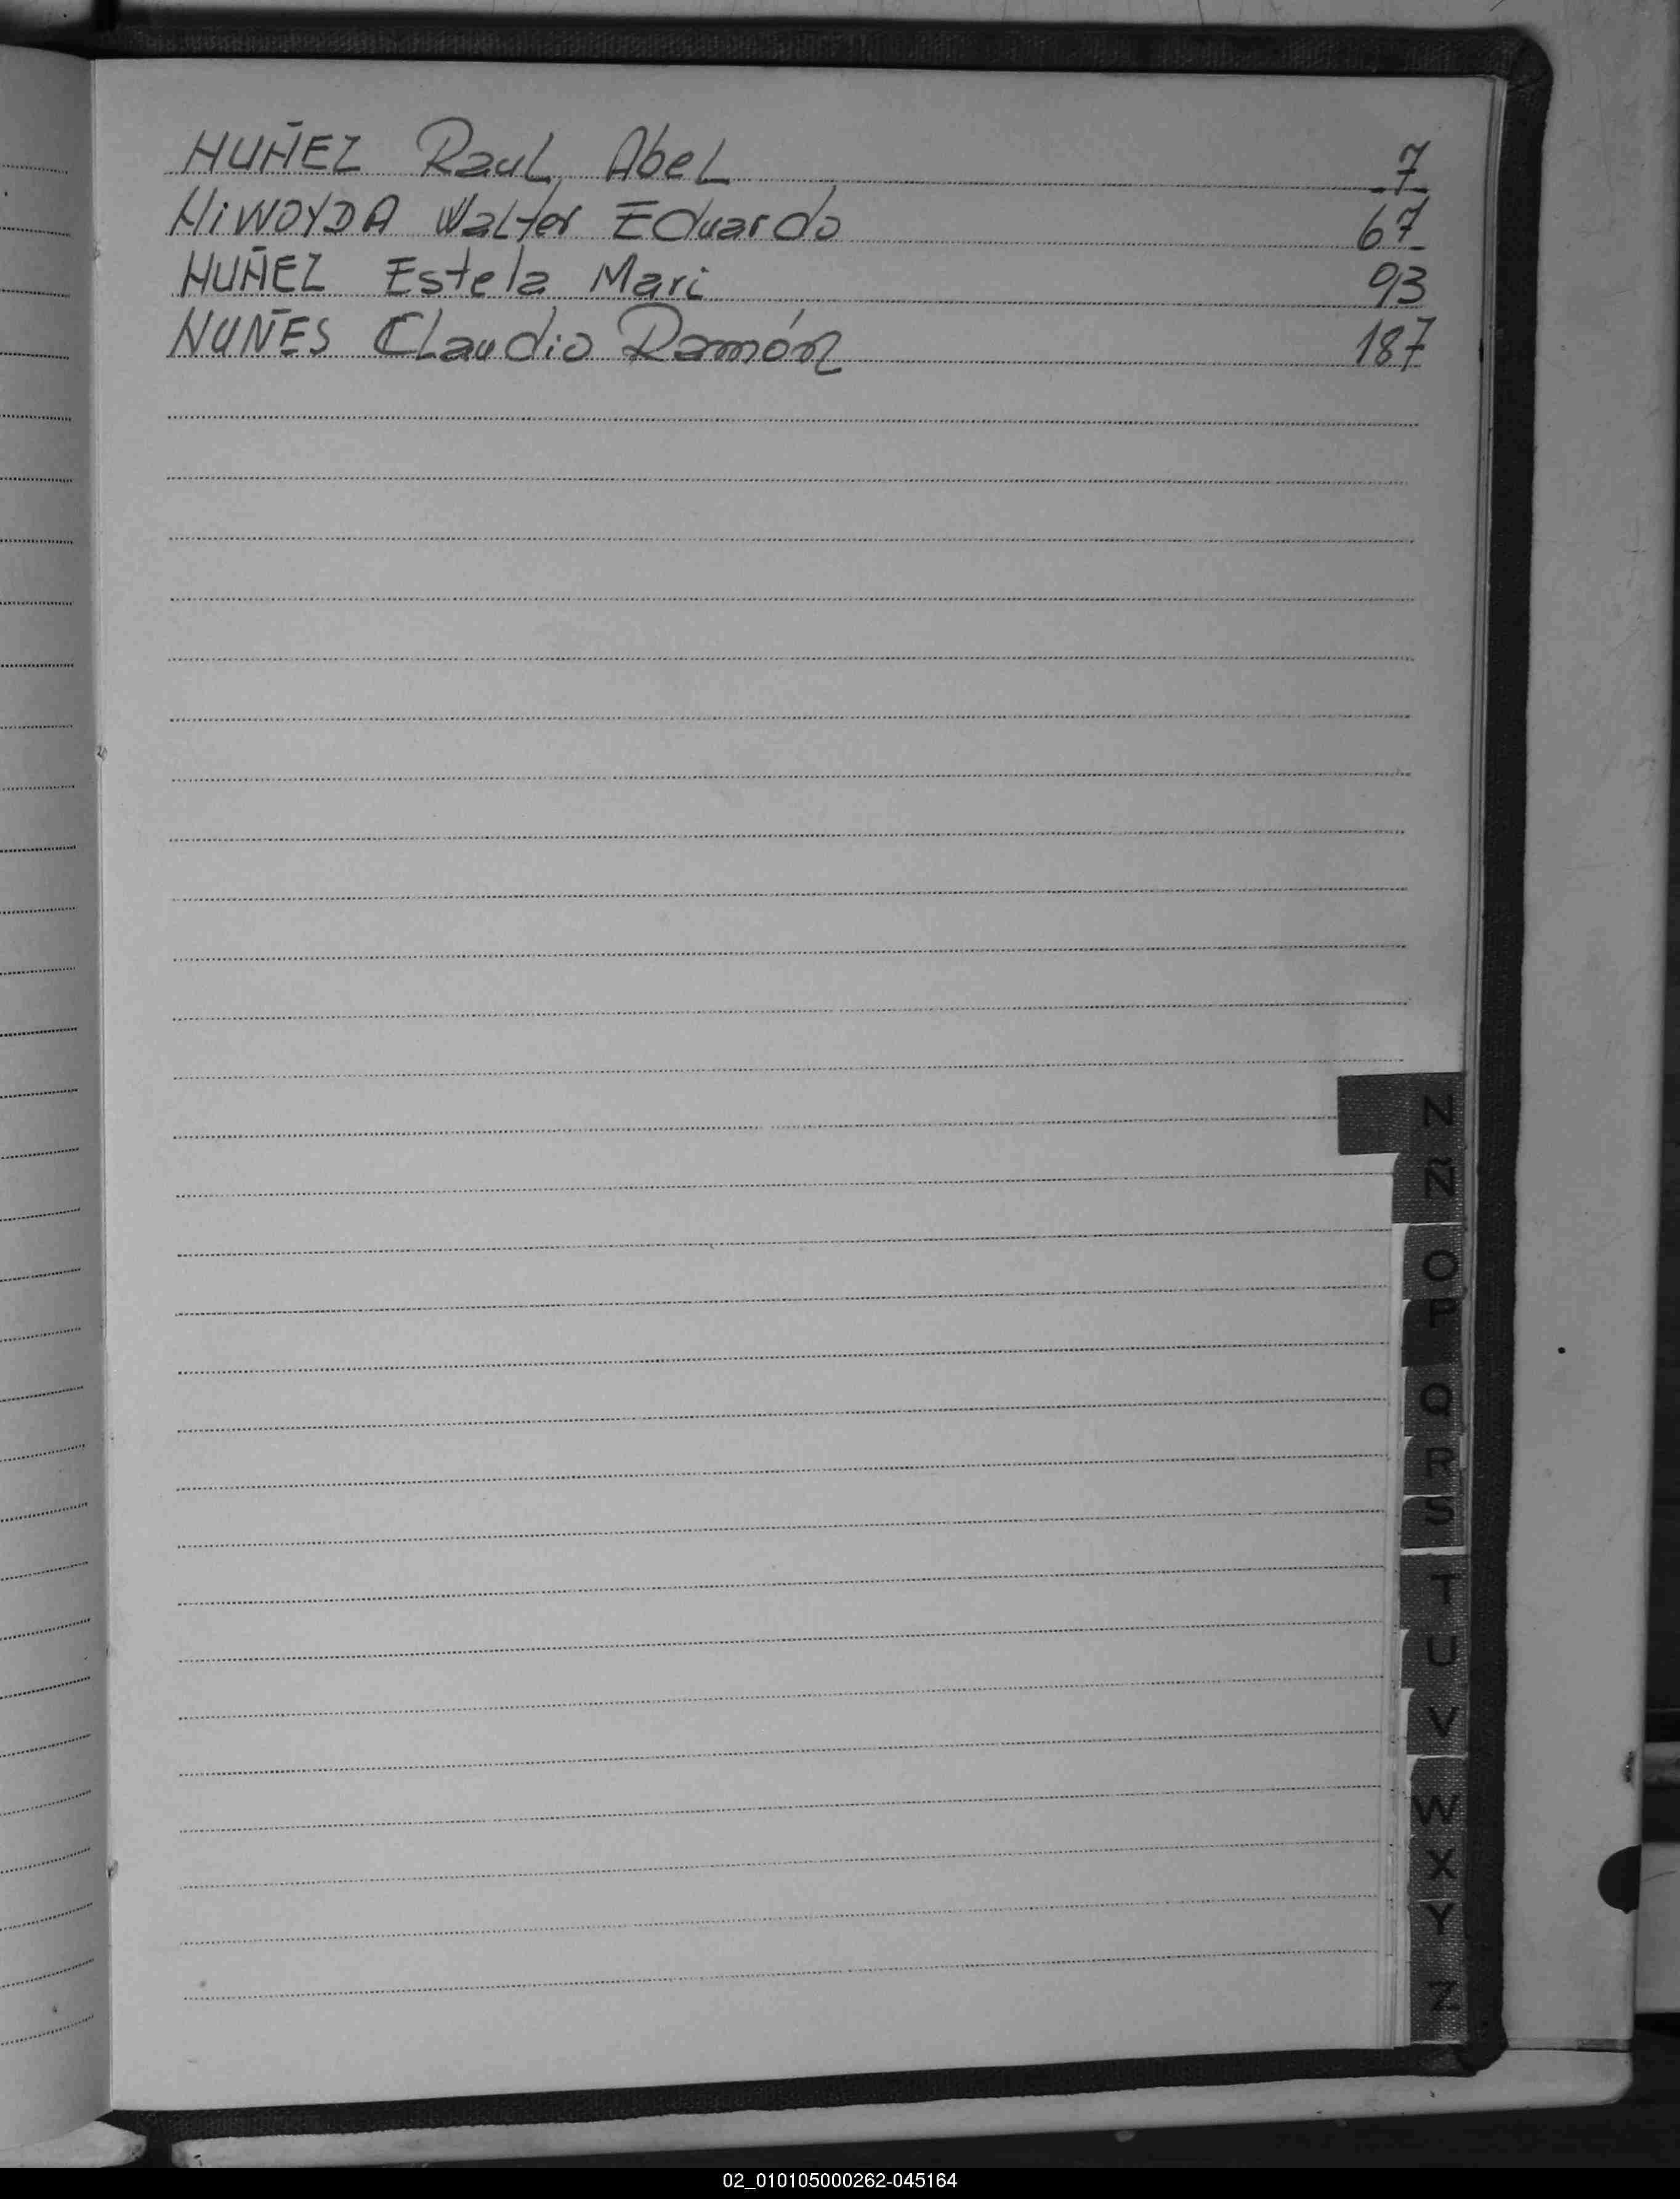 NUÑEZ Raul Abel 7
NiWOYDA Walter Eduardo 67
NUÑEZ Estela Mari 93
NUÑES Claudio Ramón 187
N
Ñ
O
P
Q
R
S
T
U
V
W
X
Y
Z
02_010105000262-045164